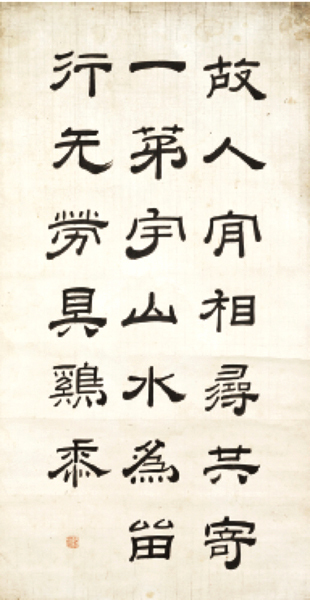 故人肎相尋共寄
一茅宇山水爲畱
行无勞具鷄黍